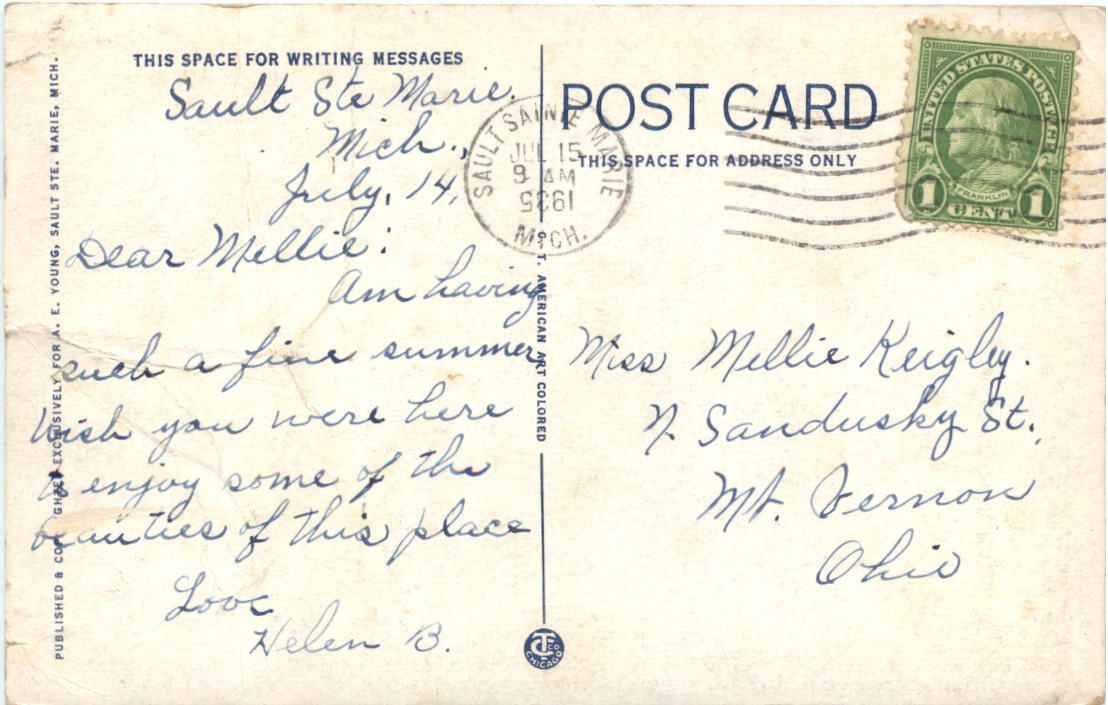 THIS SPACE FOR WRITING MESSAGES
Sault Ste Marie.
Mich.,
July, 14,
Dear Mellie:
Am having
such a fine summer
Wish you were here
to enjoy some of the
beauties of this place
Love
Helen B.
PUBLISHED & COPYRIGHTED EXCLUSIVELY FOR A. E. YOUNG, SAULT STE. MARIE, MICH.
C. T. AMERICAN ART COLORED
CT CO
CHICAGO
SAULT SAINTE MARIE
JUL 15
9 AM
MICH.
POST CARD
THIS SPACE FOR ADDRESS ONLY
UNITED STATES POSTAGE
FRANKLIN
1 CENT 1
Miss Mellie Keigley.
N. Sandusky St.
Mt. Vernon
Ohio